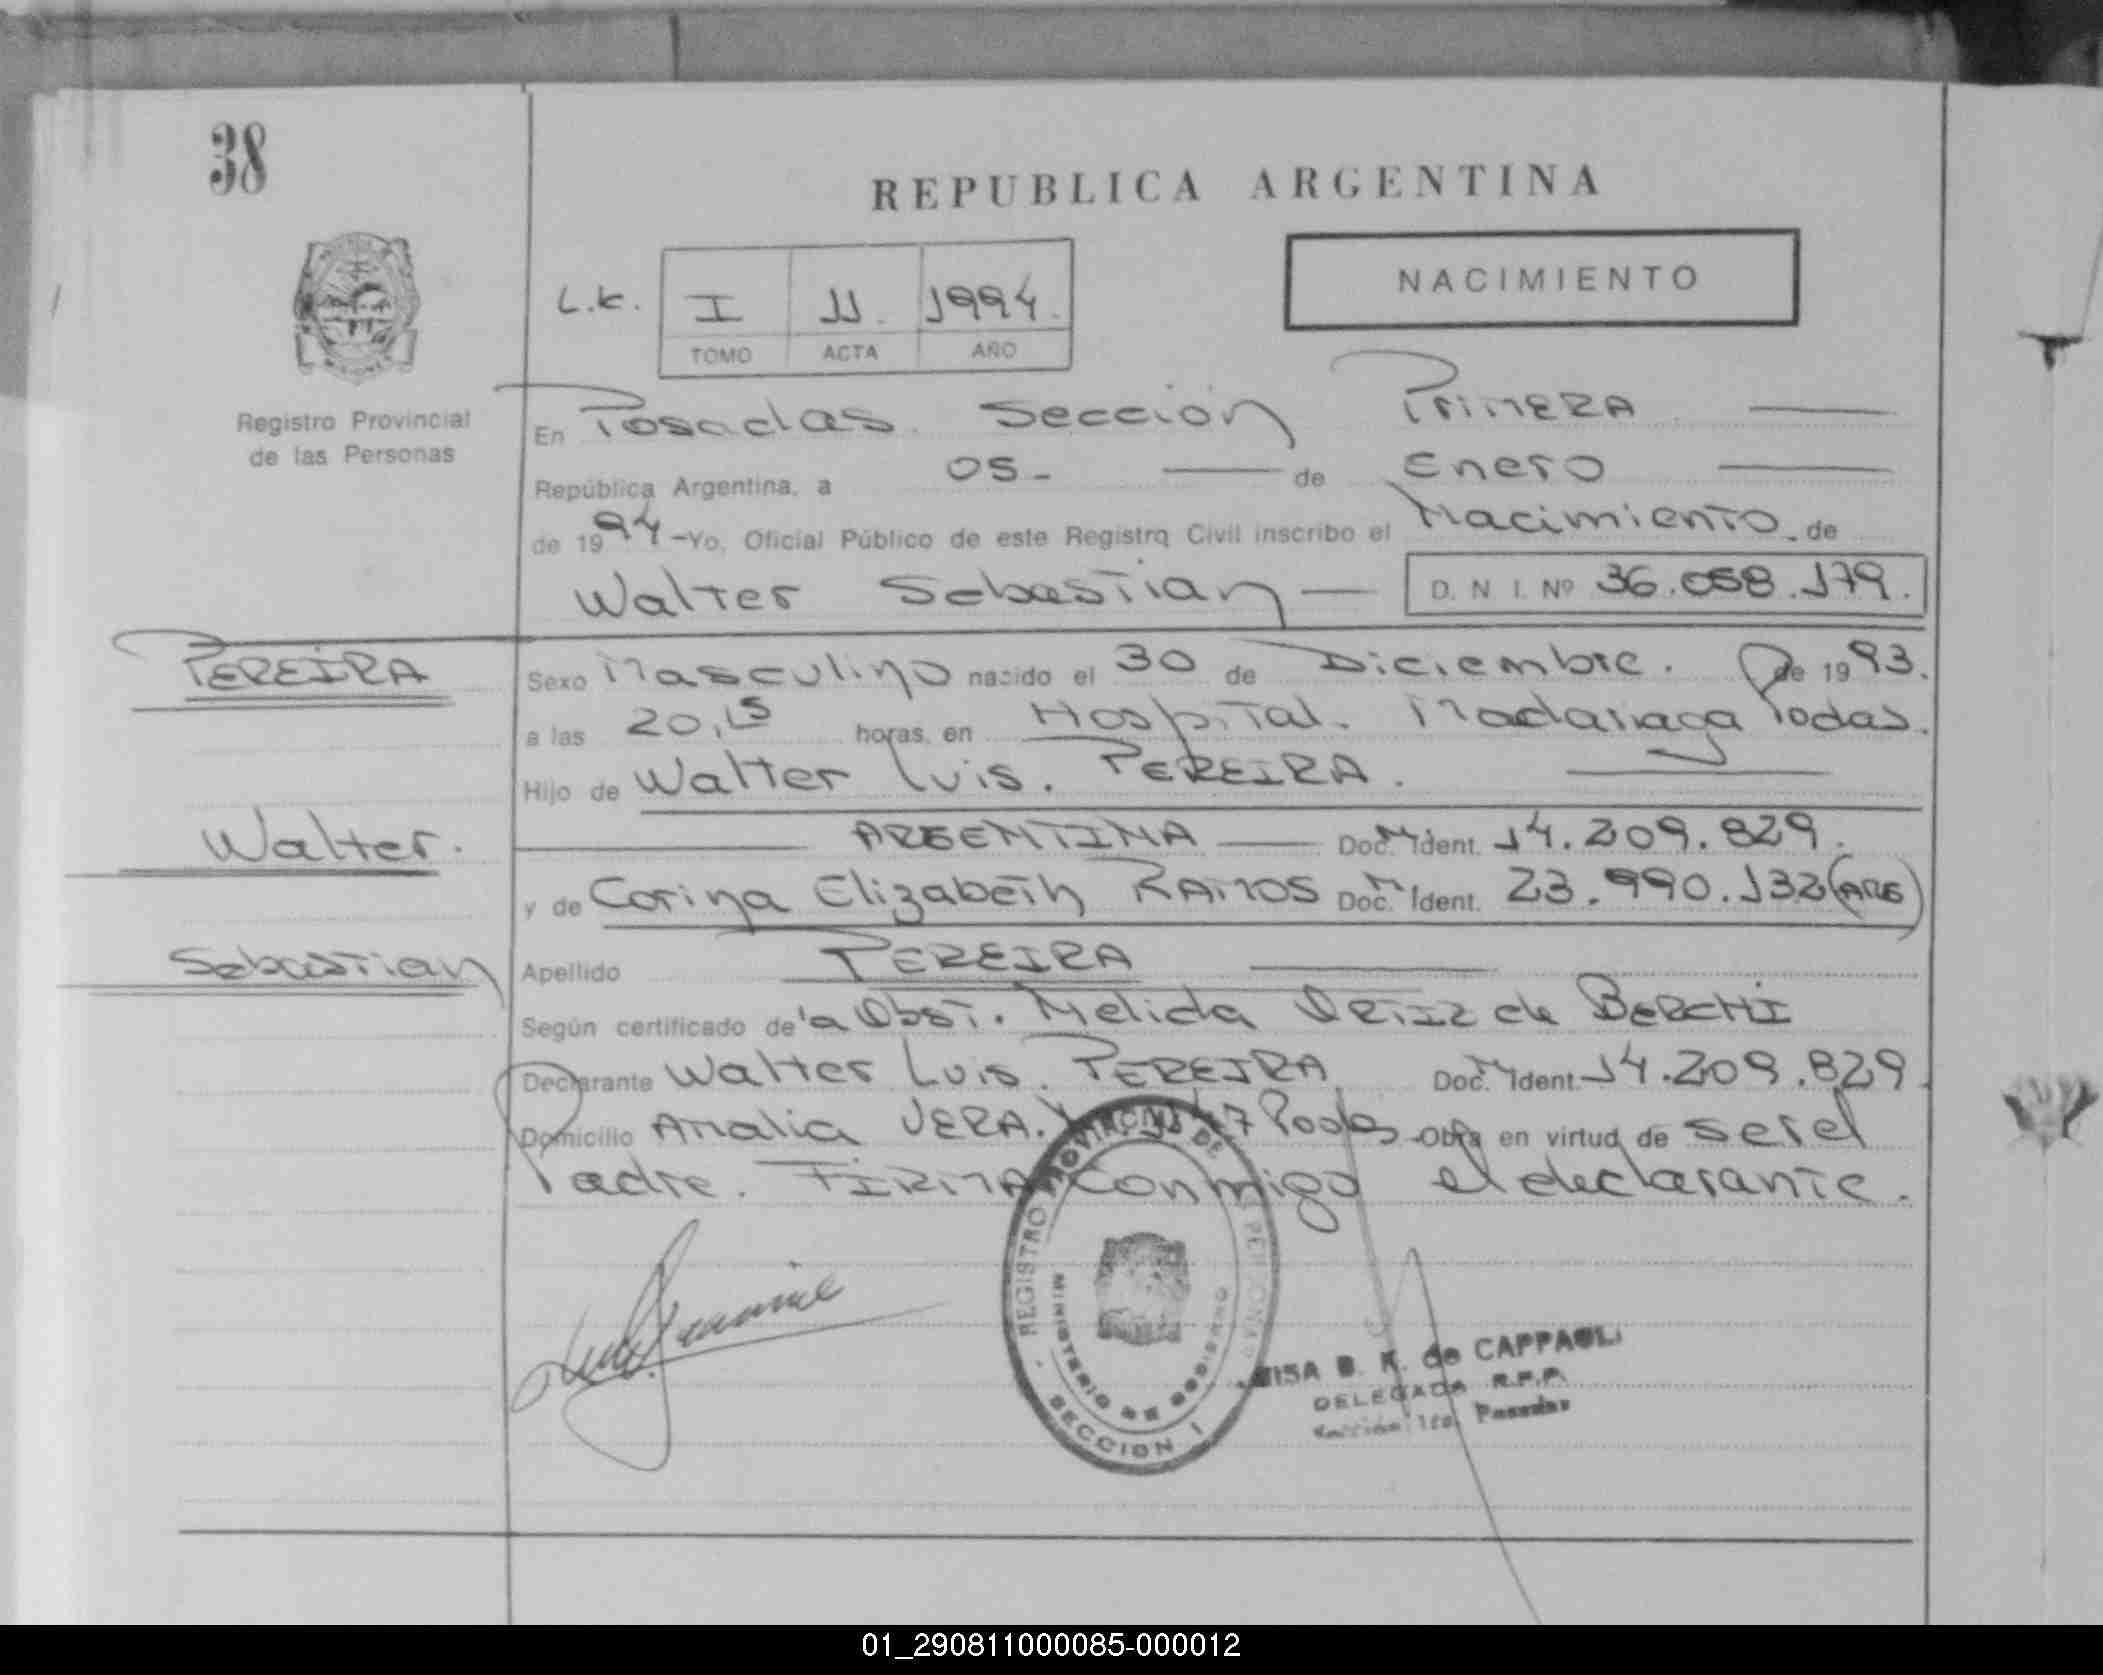 38
REPUBLICA ARGENTINA
NACIMIENTO
L.K. I 11. 1994.
TOMO ACTA AÑO
Registro Provincial
de las Personas
En Posadas Sección Primera
República Argentina, a 05- de Enero
de 1994-Yo, Oficial Público de este Registro Civil inscribo el Nacimiento de
Walter Sebastian D. N. I. Nº 36.058.179.
PEREIRA
Sexo Masculino nacido el 30 de Diciembre. de 1993.
a las 20,15 horas, en Hospital. Madariaga Podas.
Hijo de Walter Luis. PEREIRA.
Walter.
ARGENTINA Doc. M Ident. 14.209.829.
y de Corina Elizabeth RAMOS Doc. M Ident. 23.990.132 (ARG)
Sebastian
Apellido PEREIRA
Según certificado de la Obst. Nelida ORTIZ de BERCHI
Declarante Walter Luis. PEREIRA Doc. M Ident. 14.209.829
Domicilio Analia VERA. 47 Podas Obra en virtud de ser el
Padre. FIRMA Conmigo el declarante.
REGISTRO PROVINCIAL DE PERSONAS
MINISTERIO DE GOBIERNO
SECCION 1
B. K. de CAPPAOLI
DELEGADA R.P.P.
Sección 1ra. Posadas
01_290811000085-000012